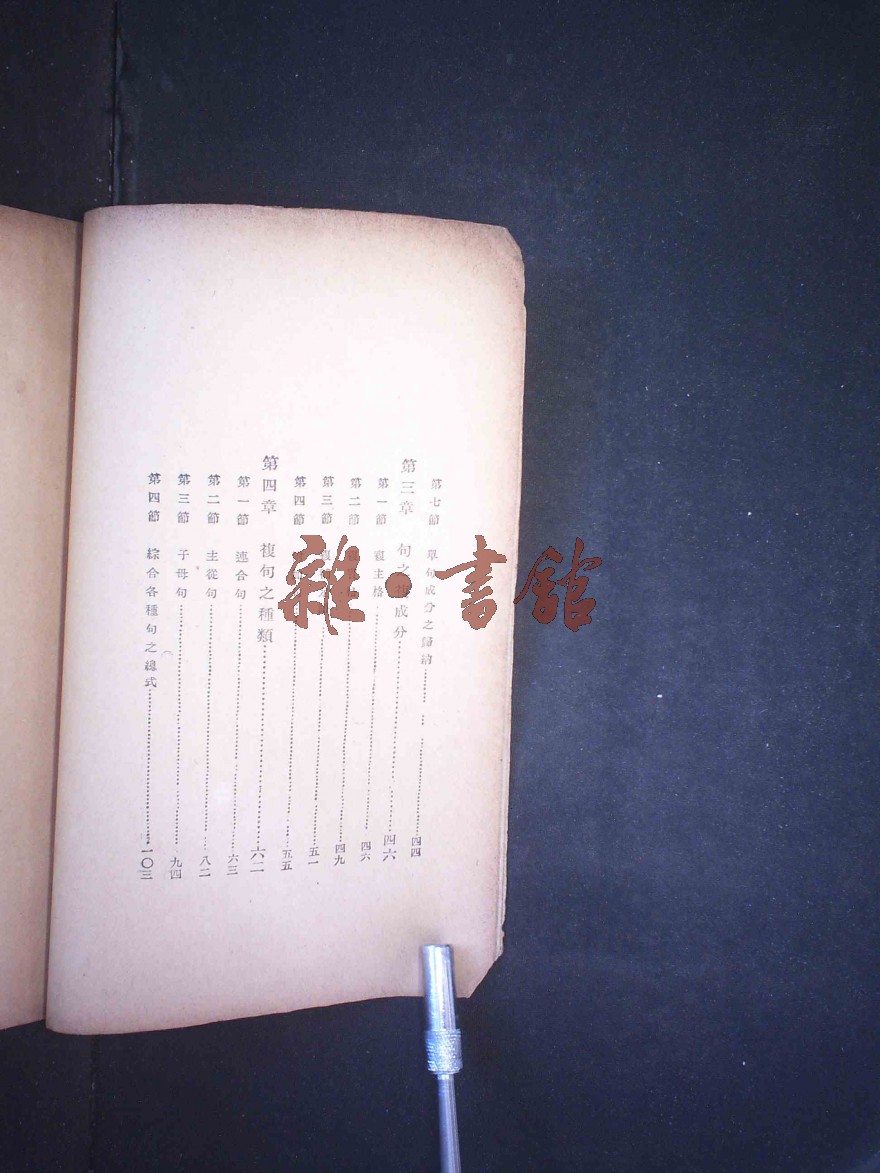 第七節 單句成分之歸納……四四
第三章 句之複成分……四六
第一節 複主格……四六
第二節……四九
第三節 複……五一
第四節……五五
第四章 複句之種類……六二
第一節 連合句……六三
第二節 主從句……八二
第三節 子母句……九四
第四節 綜合各種句之總式……一〇三
雜·書館